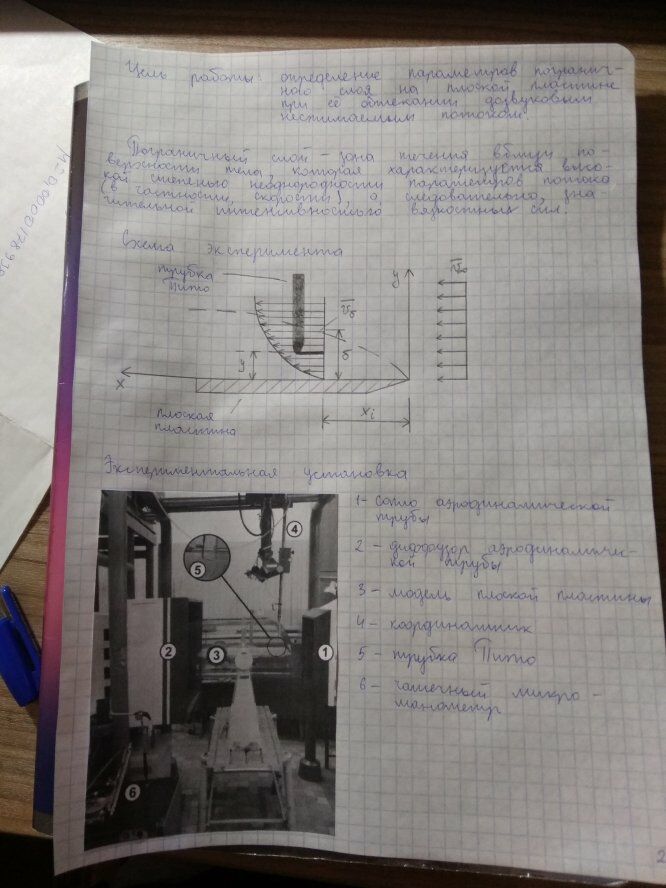 Цель работы: определение параметров погранич-
ного слоя на плоской пластине
при её обтекании дозвуковым
несжимаемым потоком.
Пограничный слой – зона течения вблизи по-
верхности тела, которая характеризуется высо-
кой степенью неоднородности параметров потока
(в частности, скорости), а, следовательно, зна-
чительной интенсивностью вязкостных сил.
Схема эксперимента
трубка
Пито
y
V̅δ
y
δ
x
xi
плоская
пластина
Экспериментальная установка
1 – Сопло аэродинамической
трубы
2 – диффузор аэродинамичес-
кой трубы
3 – модель плоской пластины
4 – координатник
5 – трубка Пито
6 – чашечный микро-
манометр
4
5
2
3
1
6
2